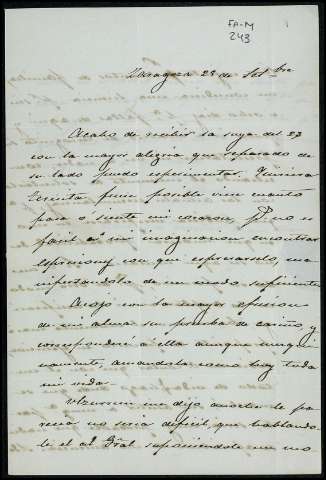 FA-M
243
Zaragoza 28 de Setbre
Acabo de recibir la suya del 27
con la mayor alegria que separado de
su lado puedo esperimentar. Quisiera
fuera posible viera cuanto
para ó siente mi corazon, pº no es
facil á mi imaginacion encontrar
espresiones con que espresarselo, ma
nifestandolo de un modo suficiente
Acojo con la mayor efusion
de mi alma su prueba de cariño, y
corresponderé á ella aunque mezqui
namente amandola como hoy toda
mi vida.
me dijo anoche le pa
recia no seria dificil que hablando
le el al Gral suplicandole un mo